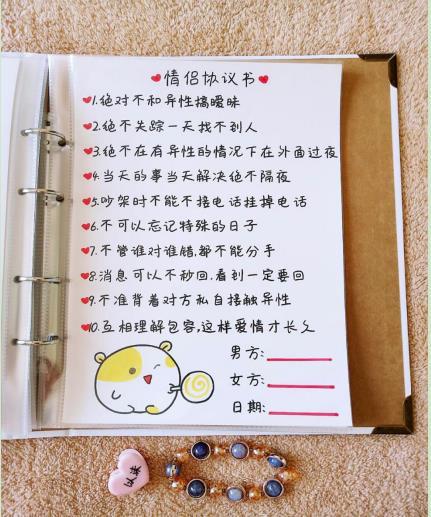 ❤情侣协议书❤
❤1.绝对不和异性搞暧昧
❤2.绝不失踪一天找不到人
❤3.绝不在有异性的情况下在外面过夜
❤4.当天的事当天解决绝不隔夜
❤5.吵架时不能不接电话挂掉电话
❤6.不可以忘记特殊的日子
❤7.不管谁对谁错,都不能分手
❤8.消息可以不秒回.看到一定要回
❤9.不准背着对方私自接触异性
❤10.互相理解包容,这样爱情才长久
男方:
女方:
日期: